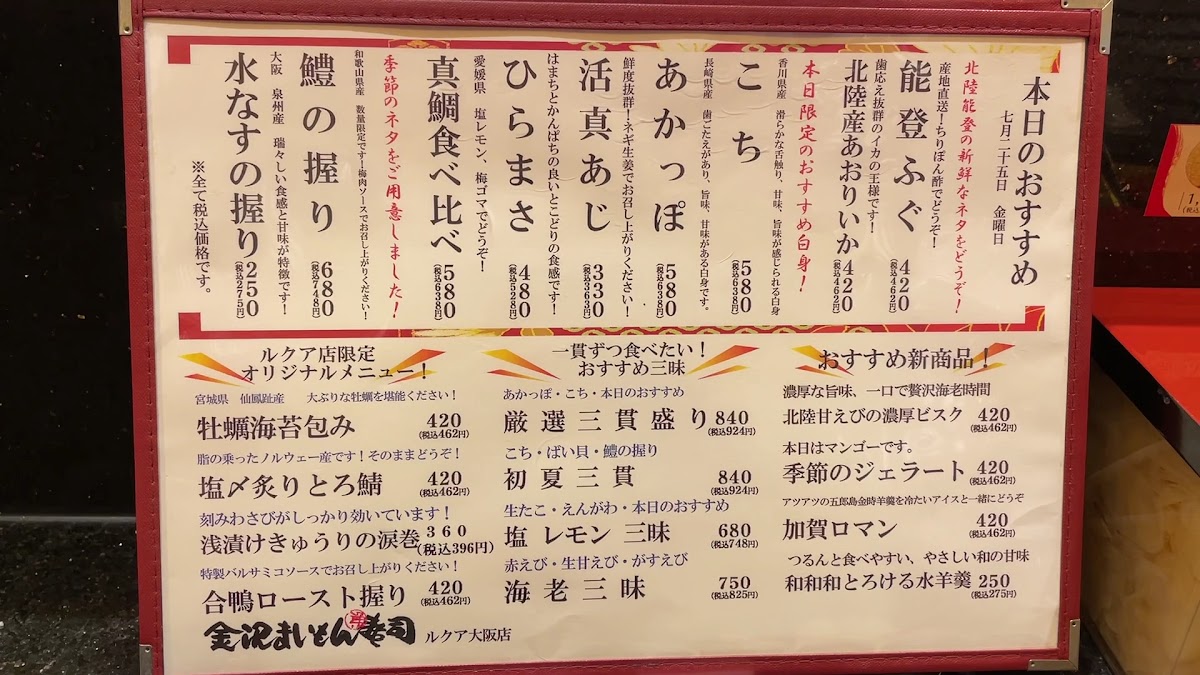 本日のおすすめ
七月二十五日　金曜日
北陸能登の新鮮なネタをどうぞ！
産地直送！ちりぽん酢でどうぞ！
能登ふぐ 420
(税込462円)
歯応え抜群のイカの王様です！
北陸産あおりいか 420
(税込462円)
本日限定のおすすめ白身！
香川県産　滑らかな舌触り、甘味、旨味が感じられる白身
こち 580
(税込638円)
長崎県産　歯ごたえがあり、旨味、甘味がある白身です。
あかっぽ 580
(税込638円)
鮮度抜群！ネギ生姜でお召し上がりください！
活真あじ 330
(税込363円)
はまちとかんぱちの良いとこどりの食感です！
ひらまさ 480
(税込528円)
愛媛県　塩レモン、梅ゴマでどうぞ！
真鯛食べ比べ 580
(税込638円)
季節のネタをご用意しました！
和歌山県産　数量限定です！梅肉ソースでお召し上がりください！
鱧の握り 680
(税込748円)
大阪　泉州産　瑞々しい食感と甘味が特徴です！
水なすの握り 250
(税込275円)
※全て税込価格です。
ルクア店限定
オリジナルメニュー！
宮城県　仙鳳趾産　大ぶりな牡蠣を堪能ください！
牡蠣海苔包み 420
(税込462円)
脂の乗ったノルウェー産です！そのままどうぞ！
塩〆炙りとろ鯖 420
(税込462円)
刻みわさびがしっかり効いています！
浅漬けきゅうりの涙巻 360
(税込396円)
特製バルサミコソースでお召し上がりください！
合鴨ロースト握り 420
(税込462円)
金沢まいもん寿司 ルクア大阪店
一貫ずつ食べたい！
おすすめ三昧
あかっぽ・こち・本日のおすすめ
厳選三貫盛り 840
(税込924円)
こち・ばい貝・鱧の握り
初夏三貫 840
(税込924円)
生たこ・えんがわ・本日のおすすめ
塩レモン三昧 680
(税込748円)
赤えび・生甘えび・がすえび
海老三昧 750
(税込825円)
おすすめ新商品！
濃厚な旨味、一口で贅沢海老時間
北陸甘えびの濃厚ビスク 420
(税込462円)
本日はマンゴーです。
季節のジェラート 420
(税込462円)
アツアツの五郎島金時羊羹を冷たいアイスと一緒にどうぞ
加賀ロマン 420
(税込462円)
つるんと食べやすい、やさしい和の甘味
和和和とろける水羊羹 250
(税込275円)